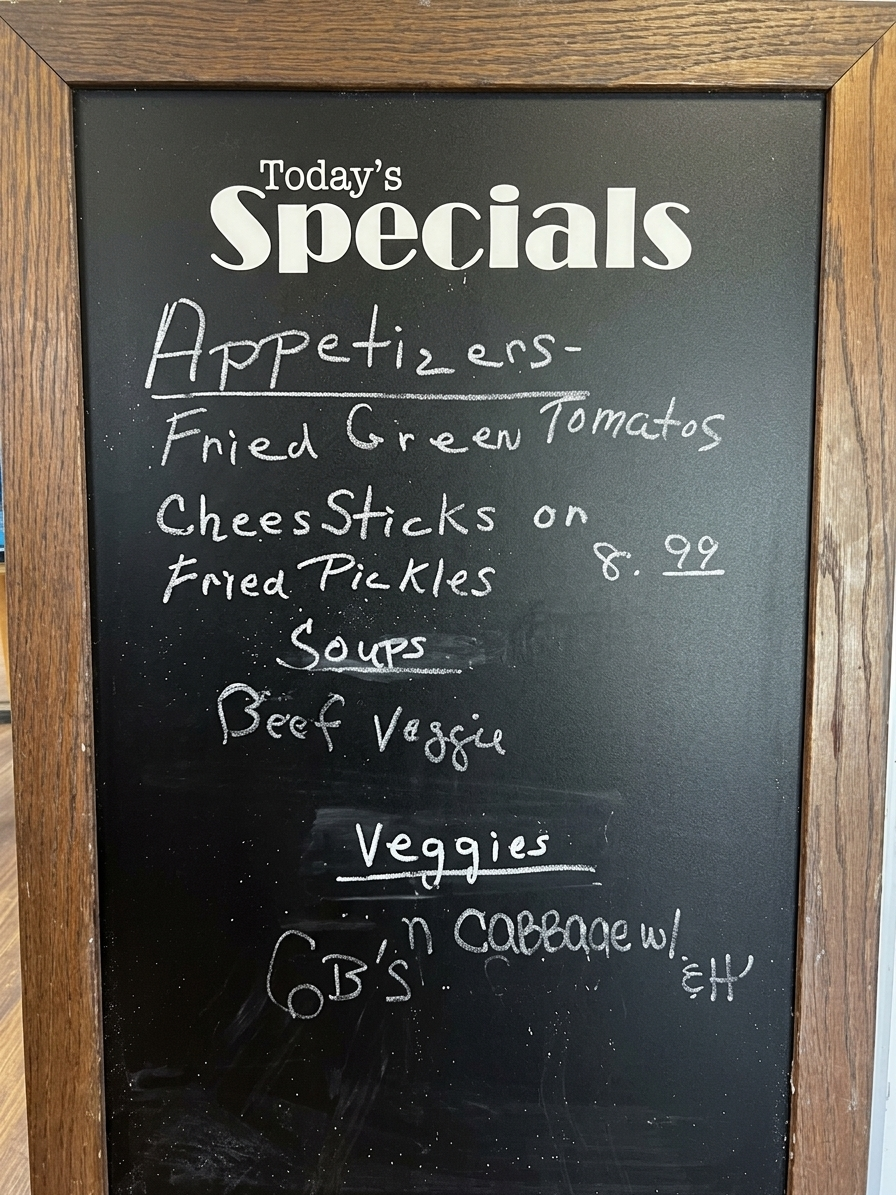 Today's
Specials
Appetizers-
Fried Green Tomatos
CheesSticks or
Fried Pickles 8.99
Soups
Beef Veggie
Veggies
GB's n CaBBage w/